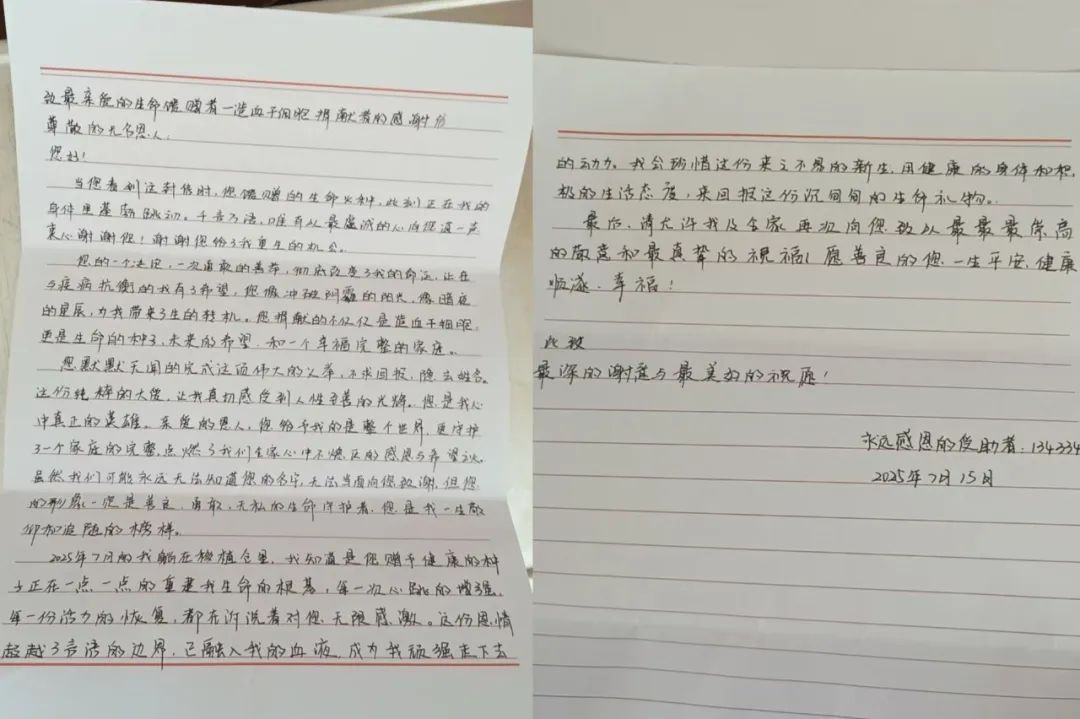 致最亲爱的生命馈赠者—造血干细胞捐献者的感谢信
尊敬的无名恩人:
您好!
当您看到这封信时,您馈赠的生命火种,此刻正在我的
身体里蓬勃跳动。千言万语,唯有以最虔诚的心向您道一声
衷心谢谢您!谢谢您给了我重生的机会。
您的一个决定,一次勇敢的善举,彻底改变了我的命运,让在
与疾病抗衡的我有了希望,您像冲破阴霾的阳光,像暗夜
的星辰,为我带来了生的转机。您捐献的不仅仅是造血干细胞,
更是生命的种子,未来的希望,和一个幸福完整的家庭。
您默默无闻的完成这项伟大的义举,不求回报,隐去姓名。
这份纯粹的大爱,让我真切感受到人性至善的光辉。您是我心
中真正的英雄。亲爱的恩人,您给予我的是整个世界,更守护
了一个家庭的完整,点燃了我们全家心中不熄灭的感恩与希望之火
虽然我们可能永远无法知道您的名字,无法当面向您致谢,但您
的形象一定是善良,勇敢,无私的生命守护者,您是我一生敬
仰和追随的榜样。
2025年7月的我躺在移植仓里,我知道是您赠予健康的种
子正在一点一点的重建我生命的根基,每一次心跳的增强,
每一份活力的恢复,都在诉说着对您无限感激。这份恩情
超越了言语的边界,已融入我的血液,成为我顽强走下去
的动力。我会珍惜这份来之不易的新生,用健康的身体和积
极的生活态度,来回报这份沉甸甸的生命礼物。
最后,请允许我及全家再次向您致以最最最崇高
的敬意和最真挚的祝福!愿善良的您一生平安、健康
顺遂、幸福!
此致
最深的谢意与最美好的祝愿!
永远感恩的受助者:134334
2025年7月15日